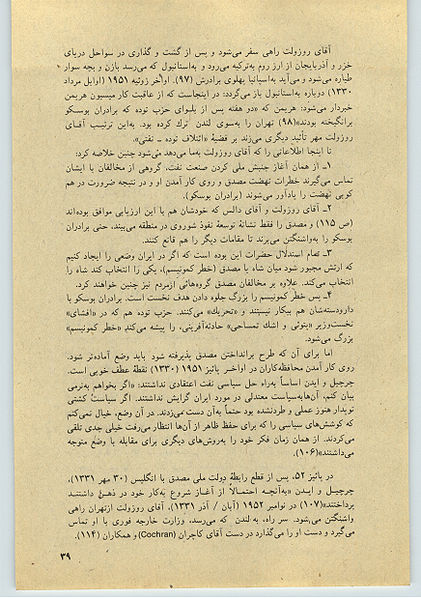 آقای روزولت راهی سفر می‌شود و پس از گشت و گذاری در سواحل دریای
خزر و آذربایجان از ارز روم به‌ترکیه می‌رود و به‌استانبول که می‌رسد بازن و بچه سوار
طیاره می‌شود و می‌آید به‌اسپانیا بهلوی برادرش (۹۷). اواخر ژوئیه ۱۹۵۱ (اوایل مرداد
۱۳۳۰) دوباره به‌استانبول باز می‌گردد: در اینجاست که از عاقبت کار میسیون هریمن
خبردار می‌شود: هریمن که «دو هفته پس از بلوای حزب توده که برادران بوسکو
برانگیخته بودند»(۹۸) تهران را به‌سوی لندن ترك کرده بود. به‌این ترتیب آقای
روزولت مهر تأئید دیگری می‌زند بر قضیهٔ «ائتلاف توده ـ نفتی».
تا اینجا اطلاعاتی را که آقای روزولت به‌ما می‌دهد می‌شود چنین خلاصه کرد:
۱ـ از همان آغاز جنبش ملی کردن صنعت نفت، گروهی از مخالفان با ایشان
تماس می‌گیرند خطرات نهضت مصدق و روی کار آمدن او و در نتیجه ضرورت در هم
کوبی نهضت را یادآور می‌شوند (برادران بوسکو).
۲ـ آقای روزولت و آقای دالس که خودشان هم با این ارزیابی موافق بوده‌اند
(ص ۱۱۵) و مصدق را فقط نشانهٔ توسعهٔ نفوذ شوروی در منطقه می‌بینند، حتی برادران
بوسکو را به‌واشنگتن می‌برند تا مقامات دیگر را هم قانع کنند.
۳ـ تمام استدلال حضرات این بوده است که اگر در ایران وضعی را ایجاد کنیم
که ارتش مجبور شود میان شاه یا مصدق (خطر کمونیسم)، یکی را انتخاب کند شاه را
انتخاب می‌کند. علاوه بر مخالفان مصدق گروه‌هائی ازمردم نیز چنین خواهند کرد.
۴ـ پس خطر کمونیسم را بزرگ جلوه دادن هدف نخست است. برادران بوسکو با
دارودسته‌شان هم بیکار نیستند و «تحریك» می‌کنند. حزب توده هم که در «افشای»
نخست‌وزیر «پتوئی و اشك تمساحی» حادثه‌آفرینی، را پیشه می‌کند «خطر کمونیسم»
بزرگ می‌شود.
اما برای آن که طرح برانداختن مصدق پذیرفته شود باید وضع آماده‌تر شود.
روی کار آمدن محافظه‌کاران در اواخر پائیز ۱۹۵۱ (۱۳۳۰) نقطهٔ عطف خوبی است.
چرچیل و ایدن اساساً به‌راه حل سیاسی نفت اعتقادی نداشتند: «اگر بخواهم به‌نرمی
بیان کنم، آن‌هابه‌سیاست معتدلی در مورد ایران گرایش نداشتند. اگر سیاست کشتی
توپدار هنوز عملی و طردنشده بود حتماً به‌آن دست می‌زدند. در آن وضع، خیال نمی‌کنم
که کوشش‌های سیاسی را که برای حفظ ظاهر از آن‌ها انتظار می‌رفت خیلی جدی تلقی
می‌کردند. از همان زمان فکر خود را به‌روش‌های دیگری برای مقابله با وضع متوجه
می‌داشتند»(۱۰۶).
در پائیز ۵۲، پس از قطع رابطهٔ دولت ملی مصدق با انگلیس (۳۰ مهر ۱۳۳۱)،
چرچیل و ایدن «به‌آنچه احتمالاً از آغاز شروع به‌کار خود در ذهن داشتند
پرداختند»(۱۰۷) در نوامبر ۱۹۵۲ (آبان / آذر ۱۳۳۱)، آقای روزولت ازتهران راهی
واشنگتن می‌شود. سر راه، به لندن که می‌رسد، وزارت خارجه فوری با او تماس
می‌گیرد و دست او را می‌گذارد در دست آقای کاچران (Cochran) و همکاران (۱۱۴).
۳۹